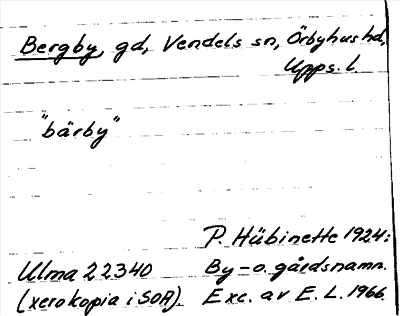 Bergby, gd, Vendels sn, Örbyhus hd,
Upps. l.
"bärby"
P. Hübinette 1924:
Ulma 22340 By- o. gårdsnamn.
(xerokopia i SOA) Exc. av E. L. 1966.